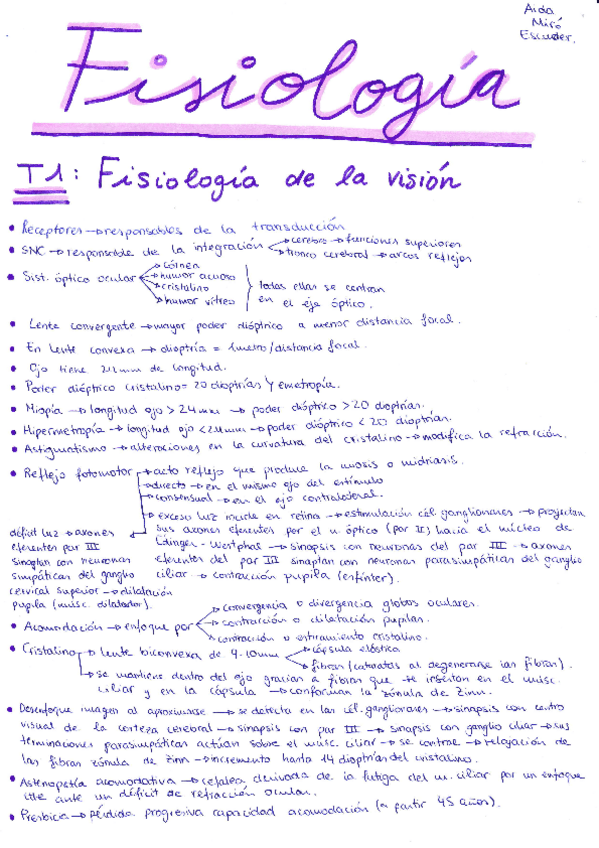 Aida
Miró
Escuder.
Fisiología
T1: Fisiología de la visión
• Receptores → responsables de la transducción
• SNC → responsable de la integración → cerebro → funciones superiores
→ tronco cerebral → arcos reflejos
• Sist. óptico ocular → córnea
→ humor acuoso
→ cristalino
→ humor vítreo
todas ellas se centran
en el eje óptico.
• Lente convergente → mayor poder dióptrico a menor distancia focal.
• En lente convexa → dioptría = 1 metro/distancia focal.
• Ojo tiene 24mm de longitud.
• Poder dióptrico cristalino = 20 dioptrías y emetropía.
• Miopía → longitud ojo > 24mm → poder dióptrico > 20 dioptrías.
• Hipermetropía → longitud ojo < 24mm → poder dióptrico < 20 dioptrías.
• Astigmatismo → alteraciones en la curvatura del cristalino → modifica la refracción.
• Reflejo fotomotor → acto reflejo que produce la miosis o midriasis.
→ directo → en el mismo ojo del estímulo
→ consensual → en el ojo contralateral.
→ exceso luz incide en retina → estimulación cél. ganglionares → proyectan
sus axones eferentes por el n. óptico (par II) hacia el núcleo de
Edinger-Westphal → sinapsis con neuronas del par III → axones
eferentes del par III sinaptan con neuronas parasimpáticas del ganglio
ciliar → contracción pupila (esfínter).
déficit luz → axones
eferentes par III
sinaptan con neuronas
simpáticas del ganglio
cervical superior → dilatación
pupila (músc. dilatador).
• Acomodación → enfoque por → convergencia o divergencia globos oculares.
→ contracción o dilatación pupilar.
→ contracción o estiramiento cristalino.
• Cristalino → lente biconvexa de 9-10mm → cápsula elástica
→ fibras (cataratas al degenerarse las fibras).
→ se mantiene dentro del ojo gracias a fibras que se insertan en el músc.
ciliar y en la cápsula → conforman la zónula de Zinn.
• Desenfoque imagen al aproximarse → se detecta en las cél. ganglionares → sinapsis con centro
visual de la corteza cerebral → sinapsis con par III → sinapsis con ganglio ciliar → sus
terminaciones parasimpáticas actúan sobre el músc. ciliar → se contrae → relajación de
las fibras zónula de Zinn → incremento hasta 14 dioptrías del cristalino.
• Astenopatía acomodativa → cefalea derivada de la fatiga del m. ciliar por un enfoque
cte ante un déficit de refracción ocular.
• Presbicia → Pérdida progresiva capacidad acomodación (a partir 45 años).